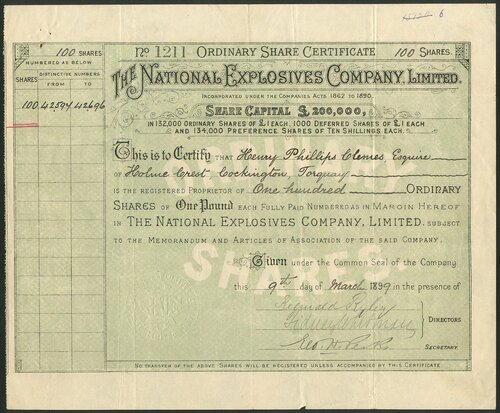 6
100 SHARES No 1211 ORDINARY SHARE CERTIFICATE 100 SHARES.
NUMBERED AS BELOW
SHARES DISTINCTIVE NUMBERS
FROM TO
100 42597 42696
THE NATIONAL EXPLOSIVES COMPANY, LIMITED.
INCORPORATED UNDER THE COMPANIES ACTS 1862 TO 1890.
SHARE CAPITAL £200,000,
IN 132,000 ORDINARY SHARES OF £1 EACH, 1000 DEFERRED SHARES OF £1 EACH
AND 134,000 PREFERENCE SHARES OF TEN SHILLINGS EACH.
This is to Certify THAT Henry Phillips Clemes, Esquire
OF Holme Crest, Cockington, Torquay
IS THE REGISTERED PROPRIETOR OF One hundred ORDINARY
SHARES OF One Pound EACH FULLY PAID NUMBERED AS IN MARGIN HEREOF
IN THE NATIONAL EXPLOSIVES COMPANY, LIMITED. SUBJECT
TO THE MEMORANDUM AND ARTICLES OF ASSOCIATION OF THE SAID COMPANY.
ORDINARY
SHARES
Given under the Common Seal of the Company
this 9th day of March 1899 in the presence of
DIRECTORS
SECRETARY.
NO TRANSFER OF THE ABOVE SHARES WILL BE REGISTERED UNLESS ACCOMPANIED BY THIS CERTIFICATE